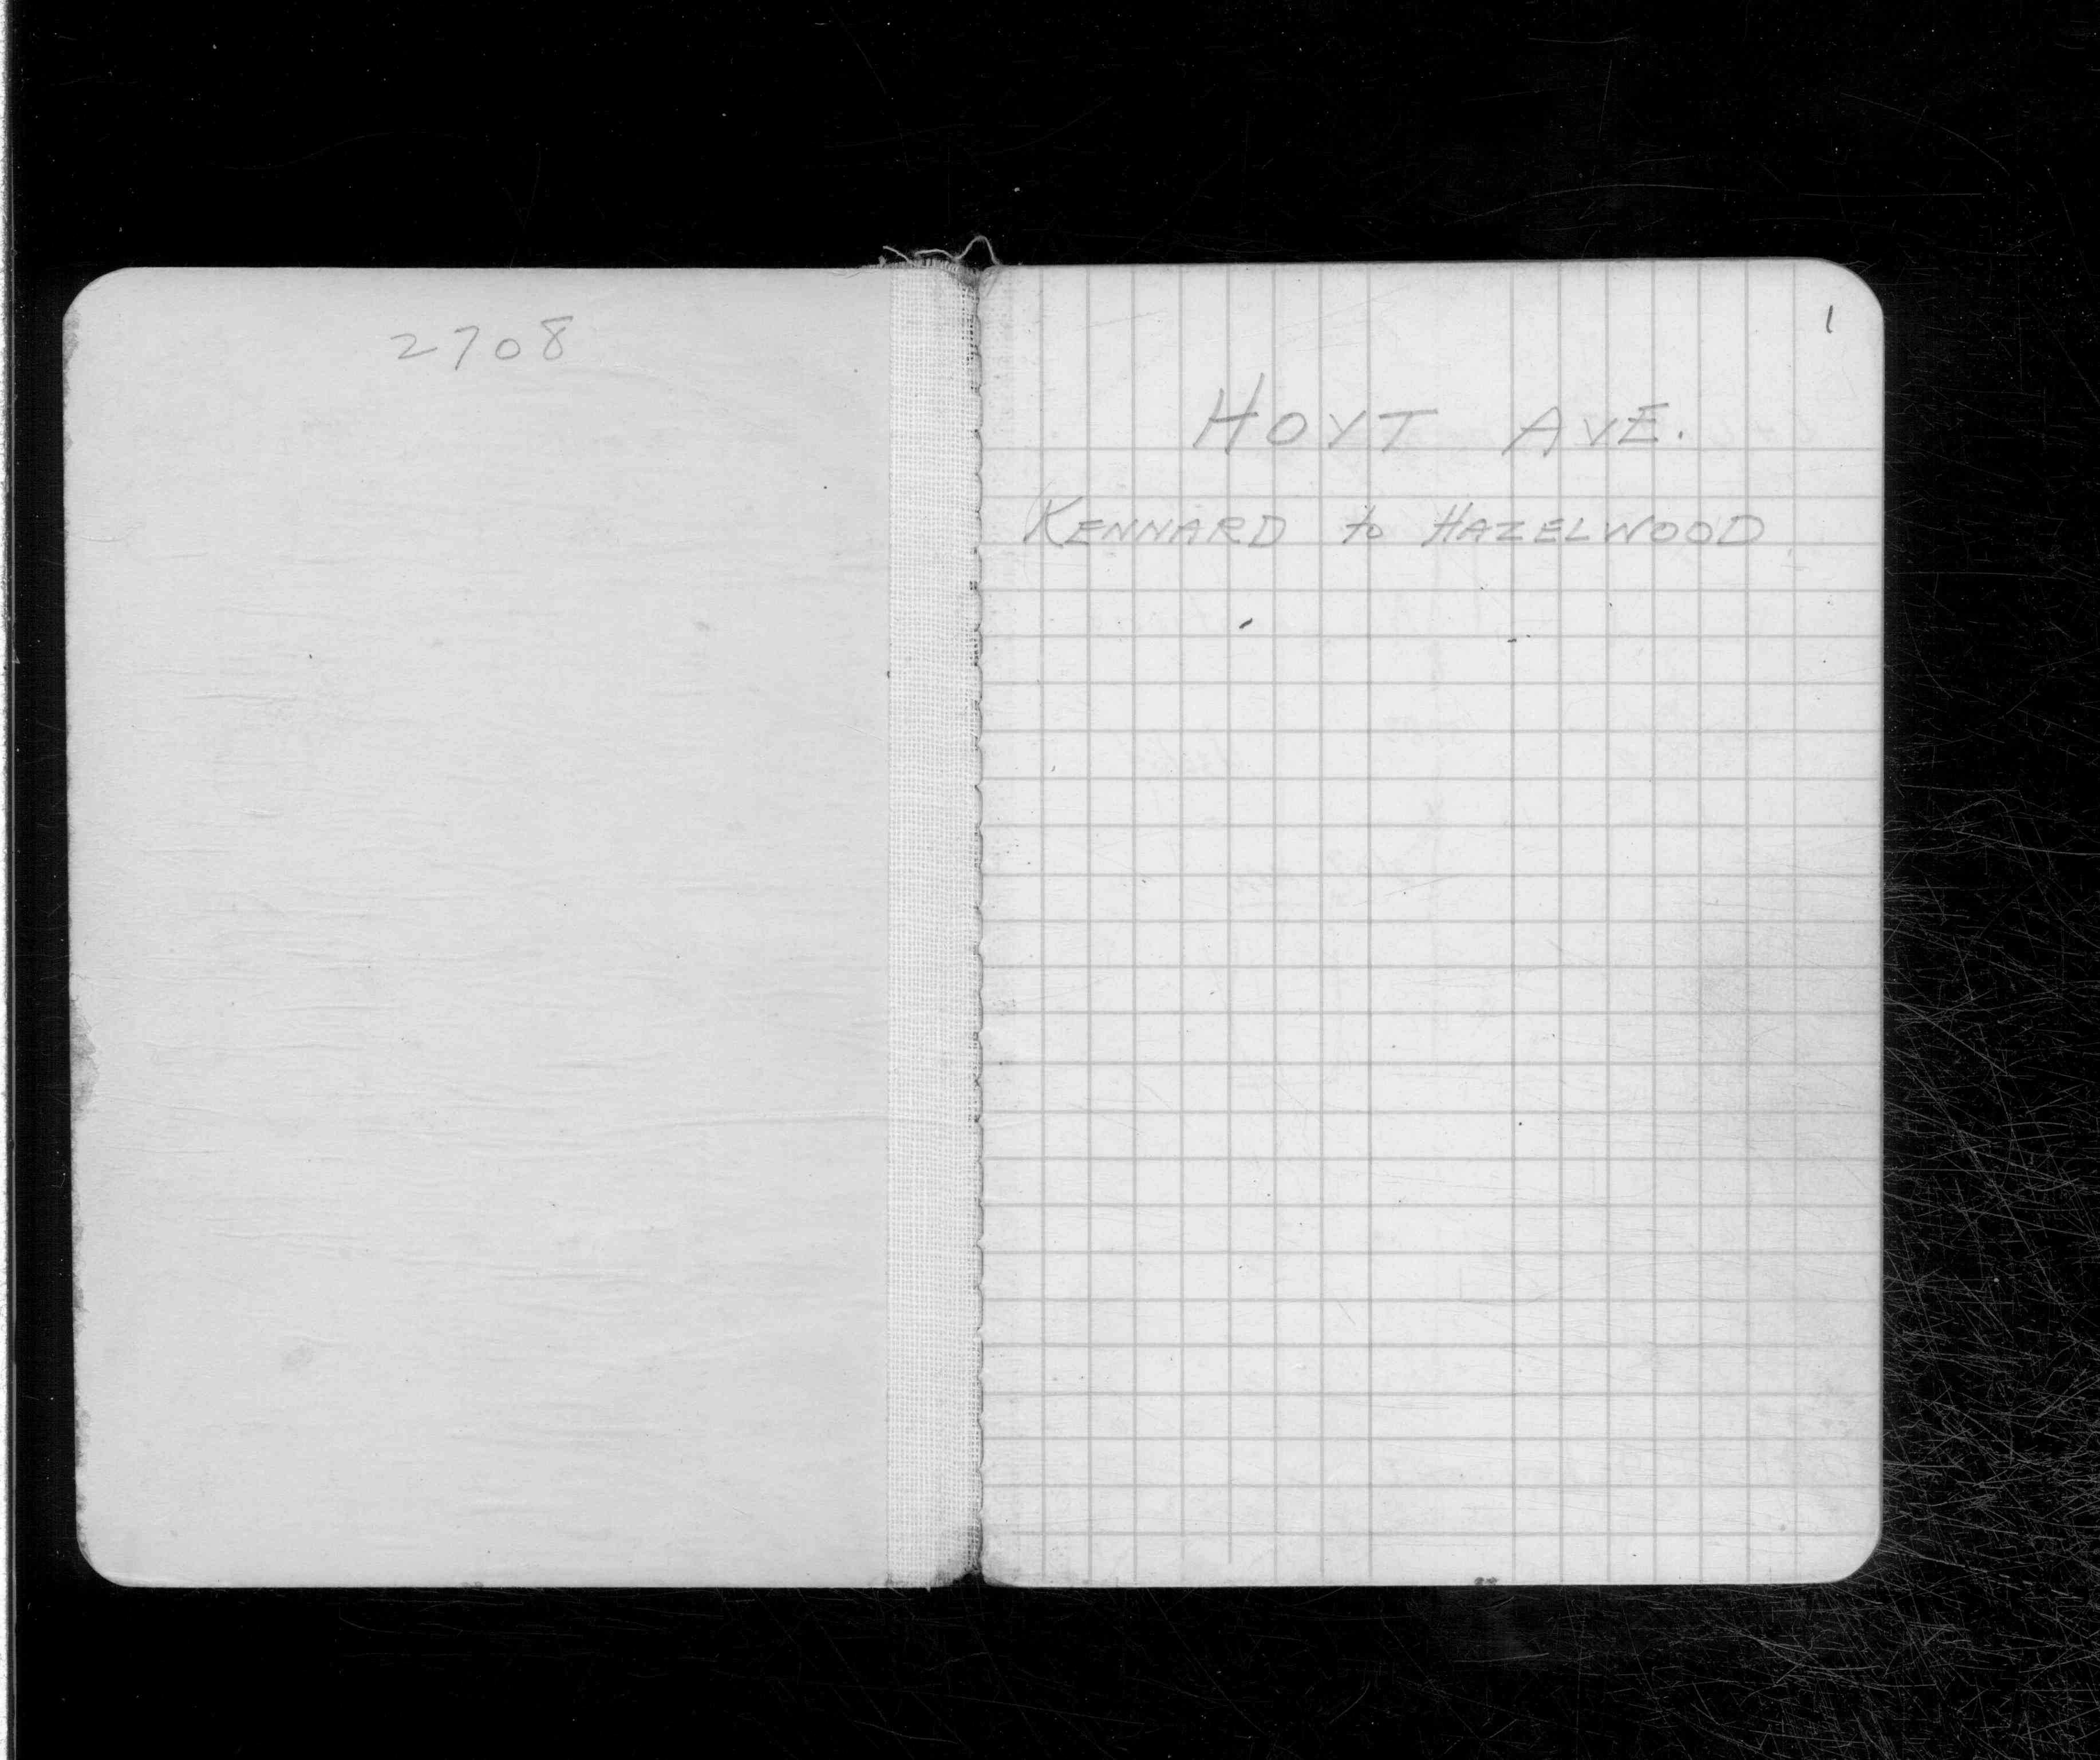 2708
1
HOYT AVE.
KENNARD to HAZELWOOD